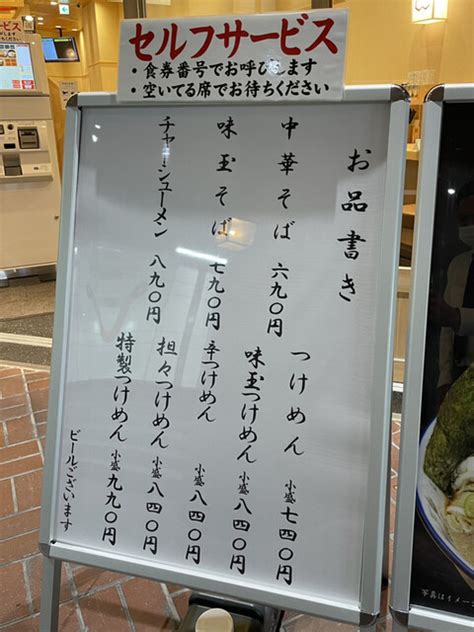 セルフサービス
・食券番号でお呼びします
・空いてる席でお待ちください
お品書き
中華そば 六九〇円
味玉そば 七九〇円
チャーシューメン 八九〇円
つけめん 小盛 七四〇円
味玉つけめん 小盛 八四〇円
辛つけめん 小盛 八四〇円
担々つけめん 小盛 八四〇円
特製つけめん 小盛 九九〇円
ビールございます
写真はイメー